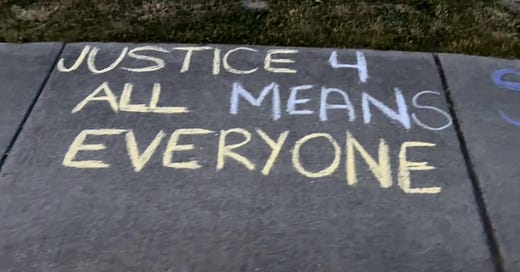 JUSTICE 4
ALL MEANS
EVERYONE